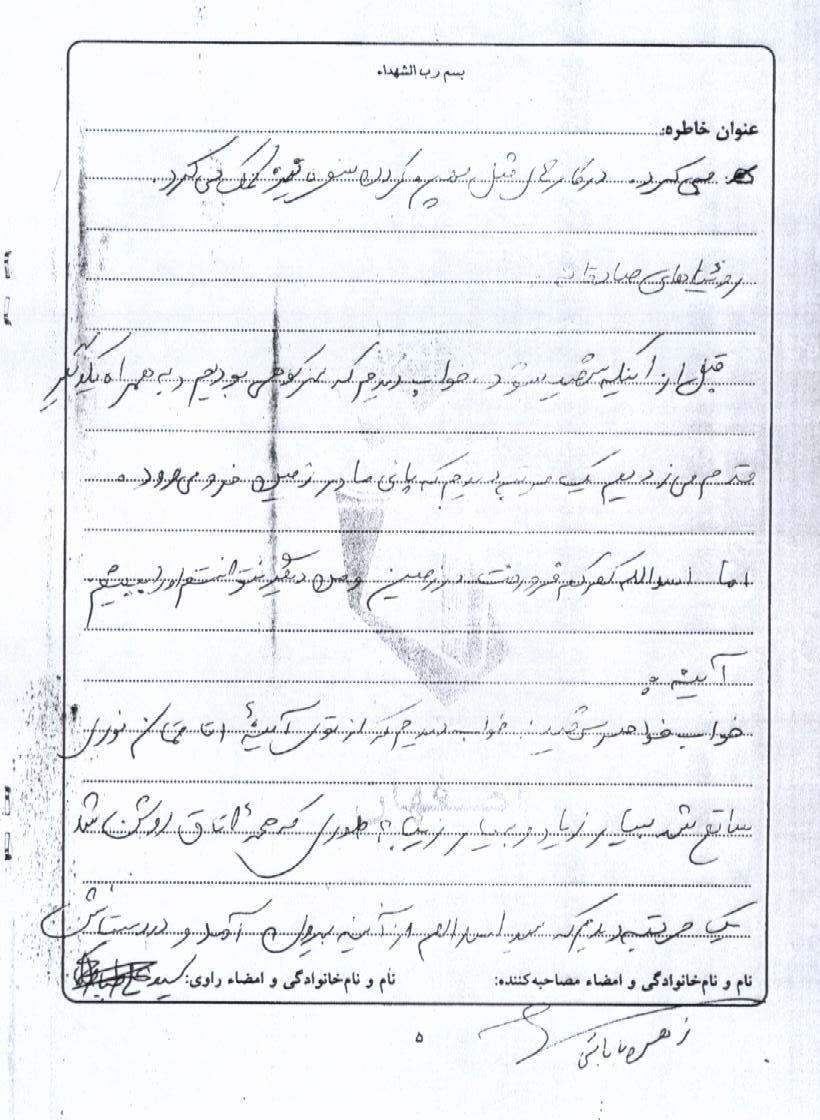 بسم رب الشهداء
عنوان خاطره:
می کرد. در کارهای قبل پهن کردن سفره و غیره کمک می کرد.
رویاهای صادقانه
قبل از اینکه شهید بشود، خواب دیدم که در کوهی بودیم و به همراه یکدیگر
قدم می زدیم یک مرتبه دیدم که پای ما در زمین فرو می رود.
اما اسدالله کم کم فرو رفت در زمین و من دیگر نتوانستم او را ببینم
آیینه:
خواب خواهر شهید: خواب دیدم که از توی آیینهٔ اتاقمان نوری
ساتع شد بسیار زیاد و بسیار زیبا به طوری که همهٔ اتاق روشن شد
یک مرتبه دیدم که سید اسدالله از آینه بیرون آمد و در دستانش
نام و نام خانوادگی و امضاء مصاحبه کننده:
نام و نام خانوادگی و امضاء راوی: سید
زهرا بابائی
۵